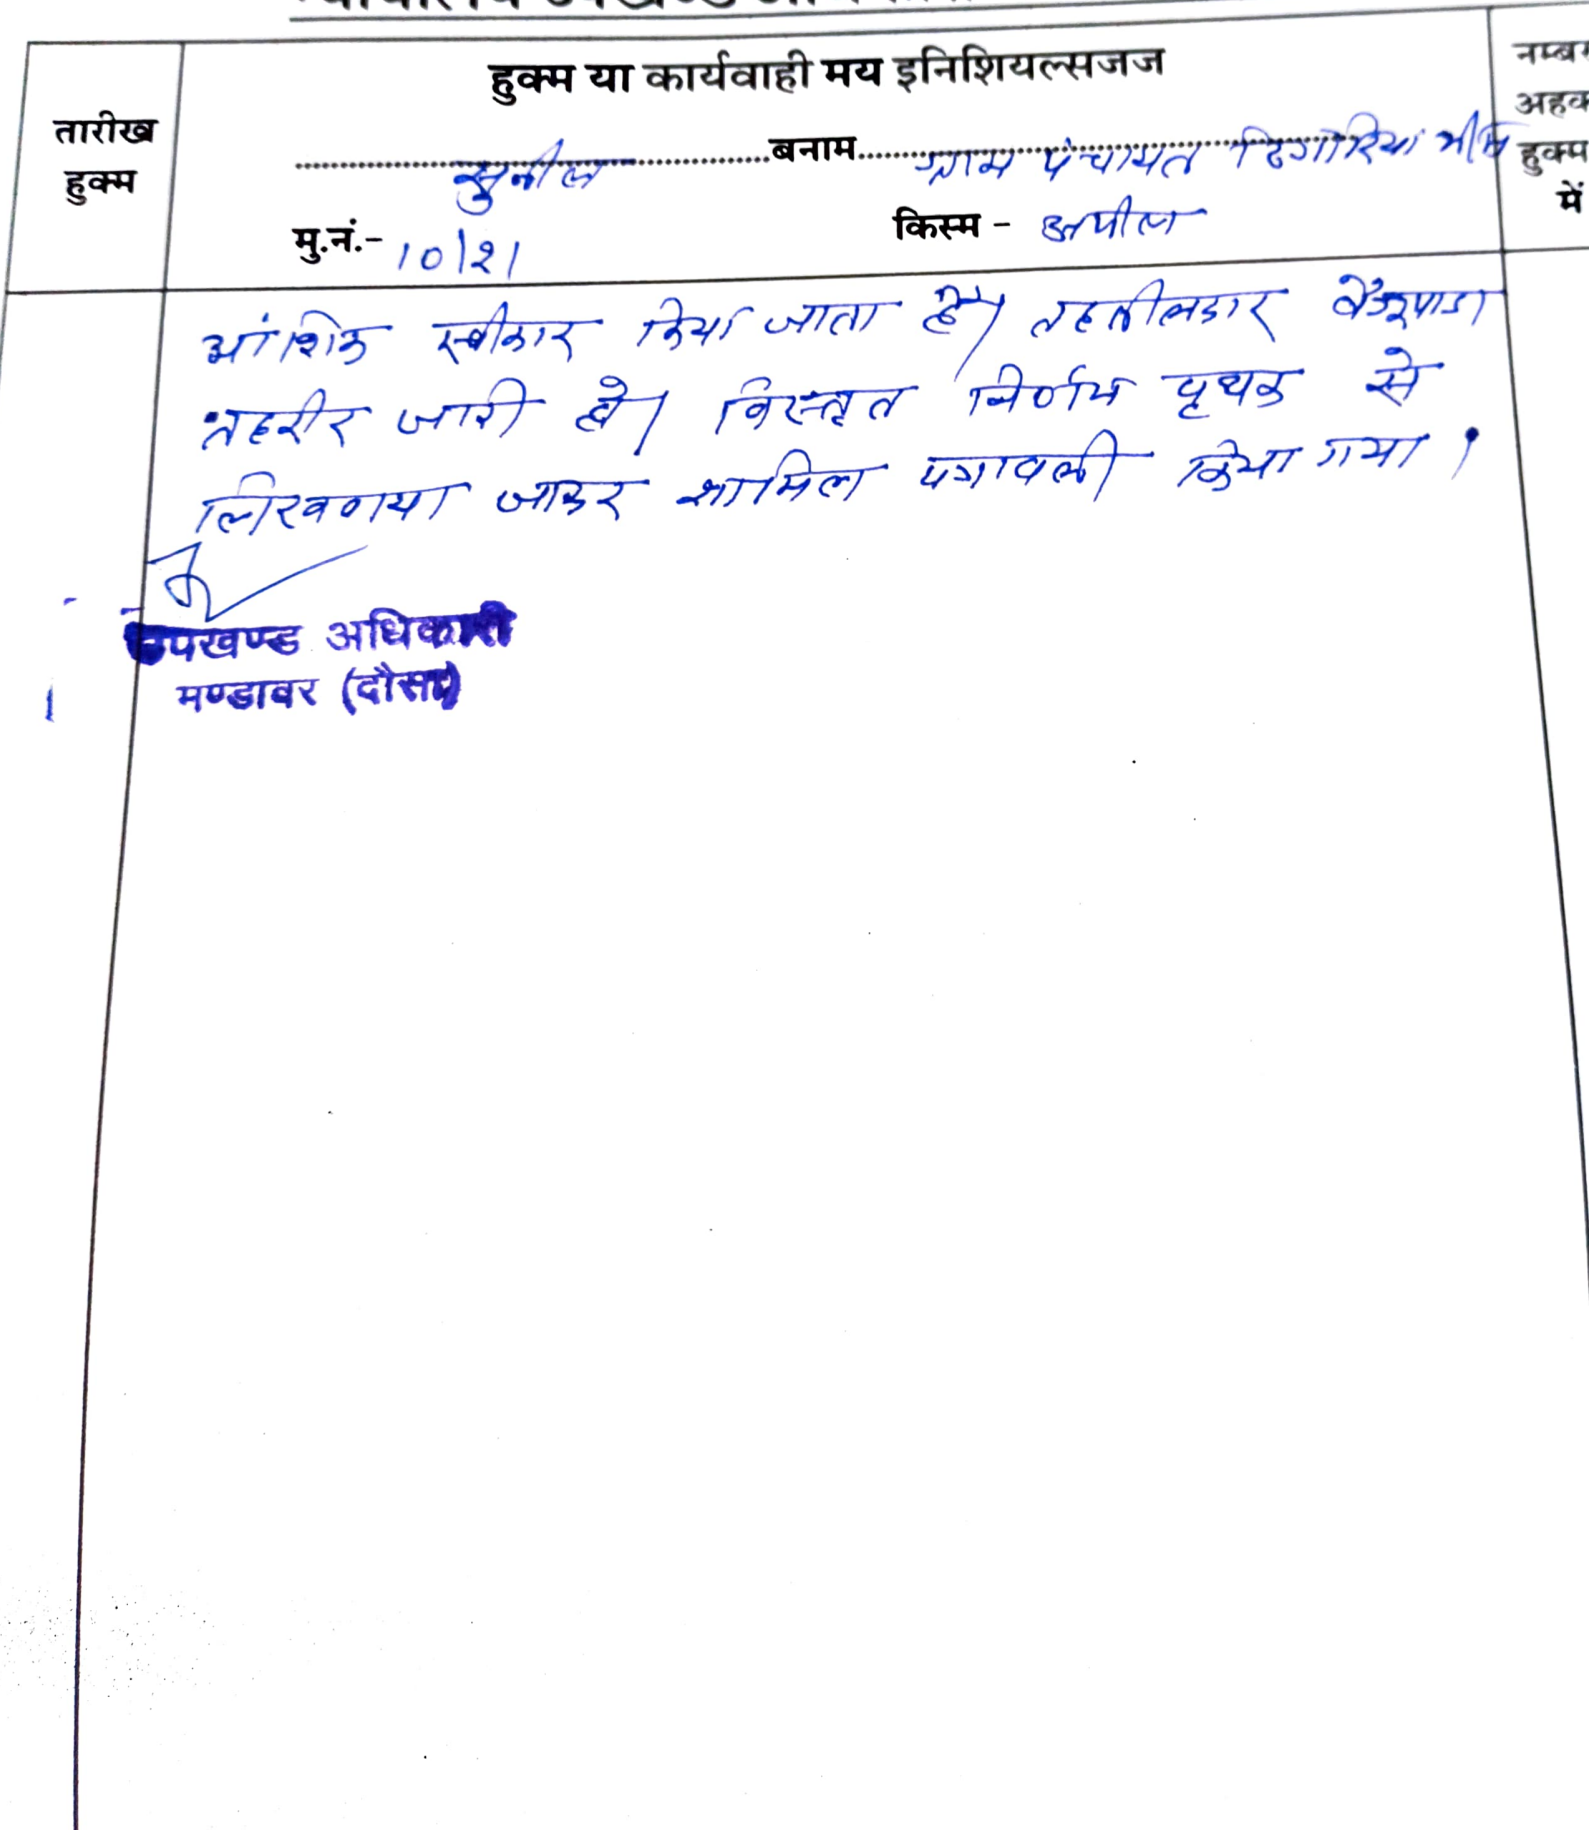 हुक्म या कार्यवाही मय इनिशियल्सजज
तारीख
हुक्म
सुनील बनाम ग्राम पंचायत टिगरिया भीम
मु.नं.- 10/21 किस्म - अपील
नम्बर
अहक
हुक्म
में
आंशिक स्वीकार किया जाता है। तहसीलदार बैजूपाडा
तहरीर जारी हो। विस्तृत निर्णय पृथक से
लिखवाया जाकर शामिल पत्रावली किया गया।
उपखण्ड अधिकारी
मण्डावर (दौसा)